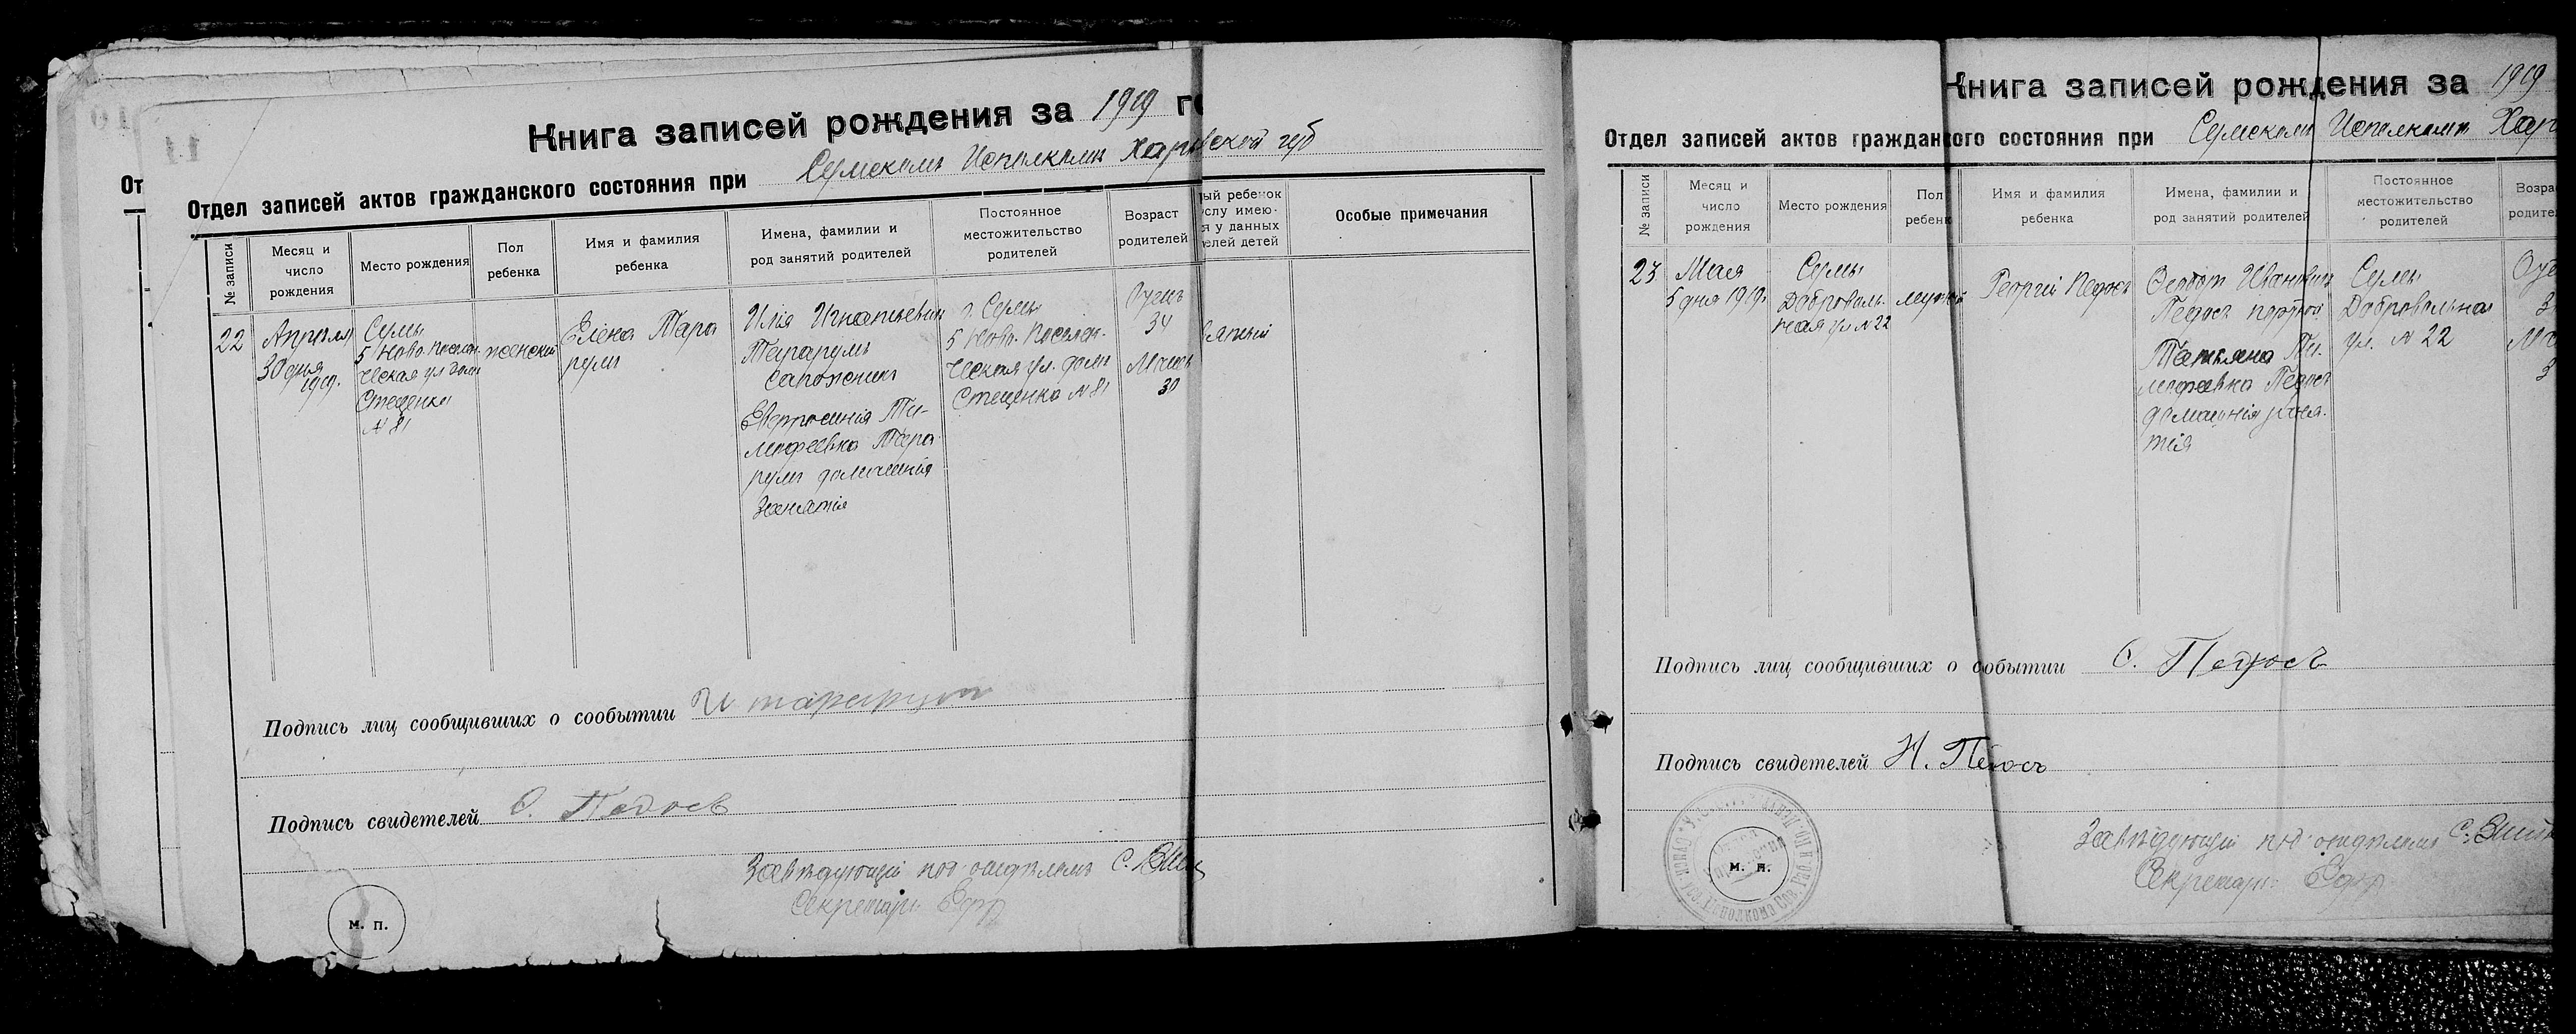 Книга записей рождения за 1919 го
Отдел записей актов гражданского состояния при Сумском Исполкоме Харьвской губ
От
№ записи
Месяц и
число
рождения
Место рождения
Пол
ребенка
Имя и фамилия
ребенка
Имена, фамилии и
род занятий родителей
Постоянное
местожительство
родителей
Возраст
родителей
ый ребенок
слу имею-
я у данных
елей детей
Особые примечания
22
Апреля
30 дня
1919.
Сумы
5 Ново-Поселен-
ческая ул дом
Стеценка
№ 81
женский
Елена Тара
румъ
Илія Игнатьевич
Тарарумъ
Сапожник
Евфросинія Ти-
мофеевна Тара-
румъ домашнія
Занятія
г. Сумы
5 Ново-Поселен-
ческая ул. домъ
Стеценка № 81
Отцъ
34
Мать
30
Подпись лиц сообщивших о сообытии И Тарарум
Подпись свидетелей Ѳ. Педосъ
Завѣдующій под отдѣломъ С.
Секретарь
м. п.
Книга записей рождения за 1919
Отдел записей актов гражданского состояния при Сумском Исполкоме Хар
№ записи
Месяц и
число
рождения
Место рождения
Пол
ребенк
Имя и фамилия
ребенка
Имена, фамилии и
род занятий родителей
Постоянное
местожительство
родителей
Возра
родител
23
Мая
5 дня 1919.
Сумы
Доброволь-
ная ул № 22
мужской
Георгій Педосъ
Ѳеодотъ Ивановичъ
Педосъ портной
Татьяна Ти-
мофеевна Педосъ
домашнія заня-
тія
Сумы
Добровольная
ул. № 22
Оте
3
Ма
3
Подпись лиц сообщивших о событии Ѳ. Педосъ
Подпись свидетелей Н. Педосъ
Завѣдующій под отдѣломъ С.
Секретарь
м. п.